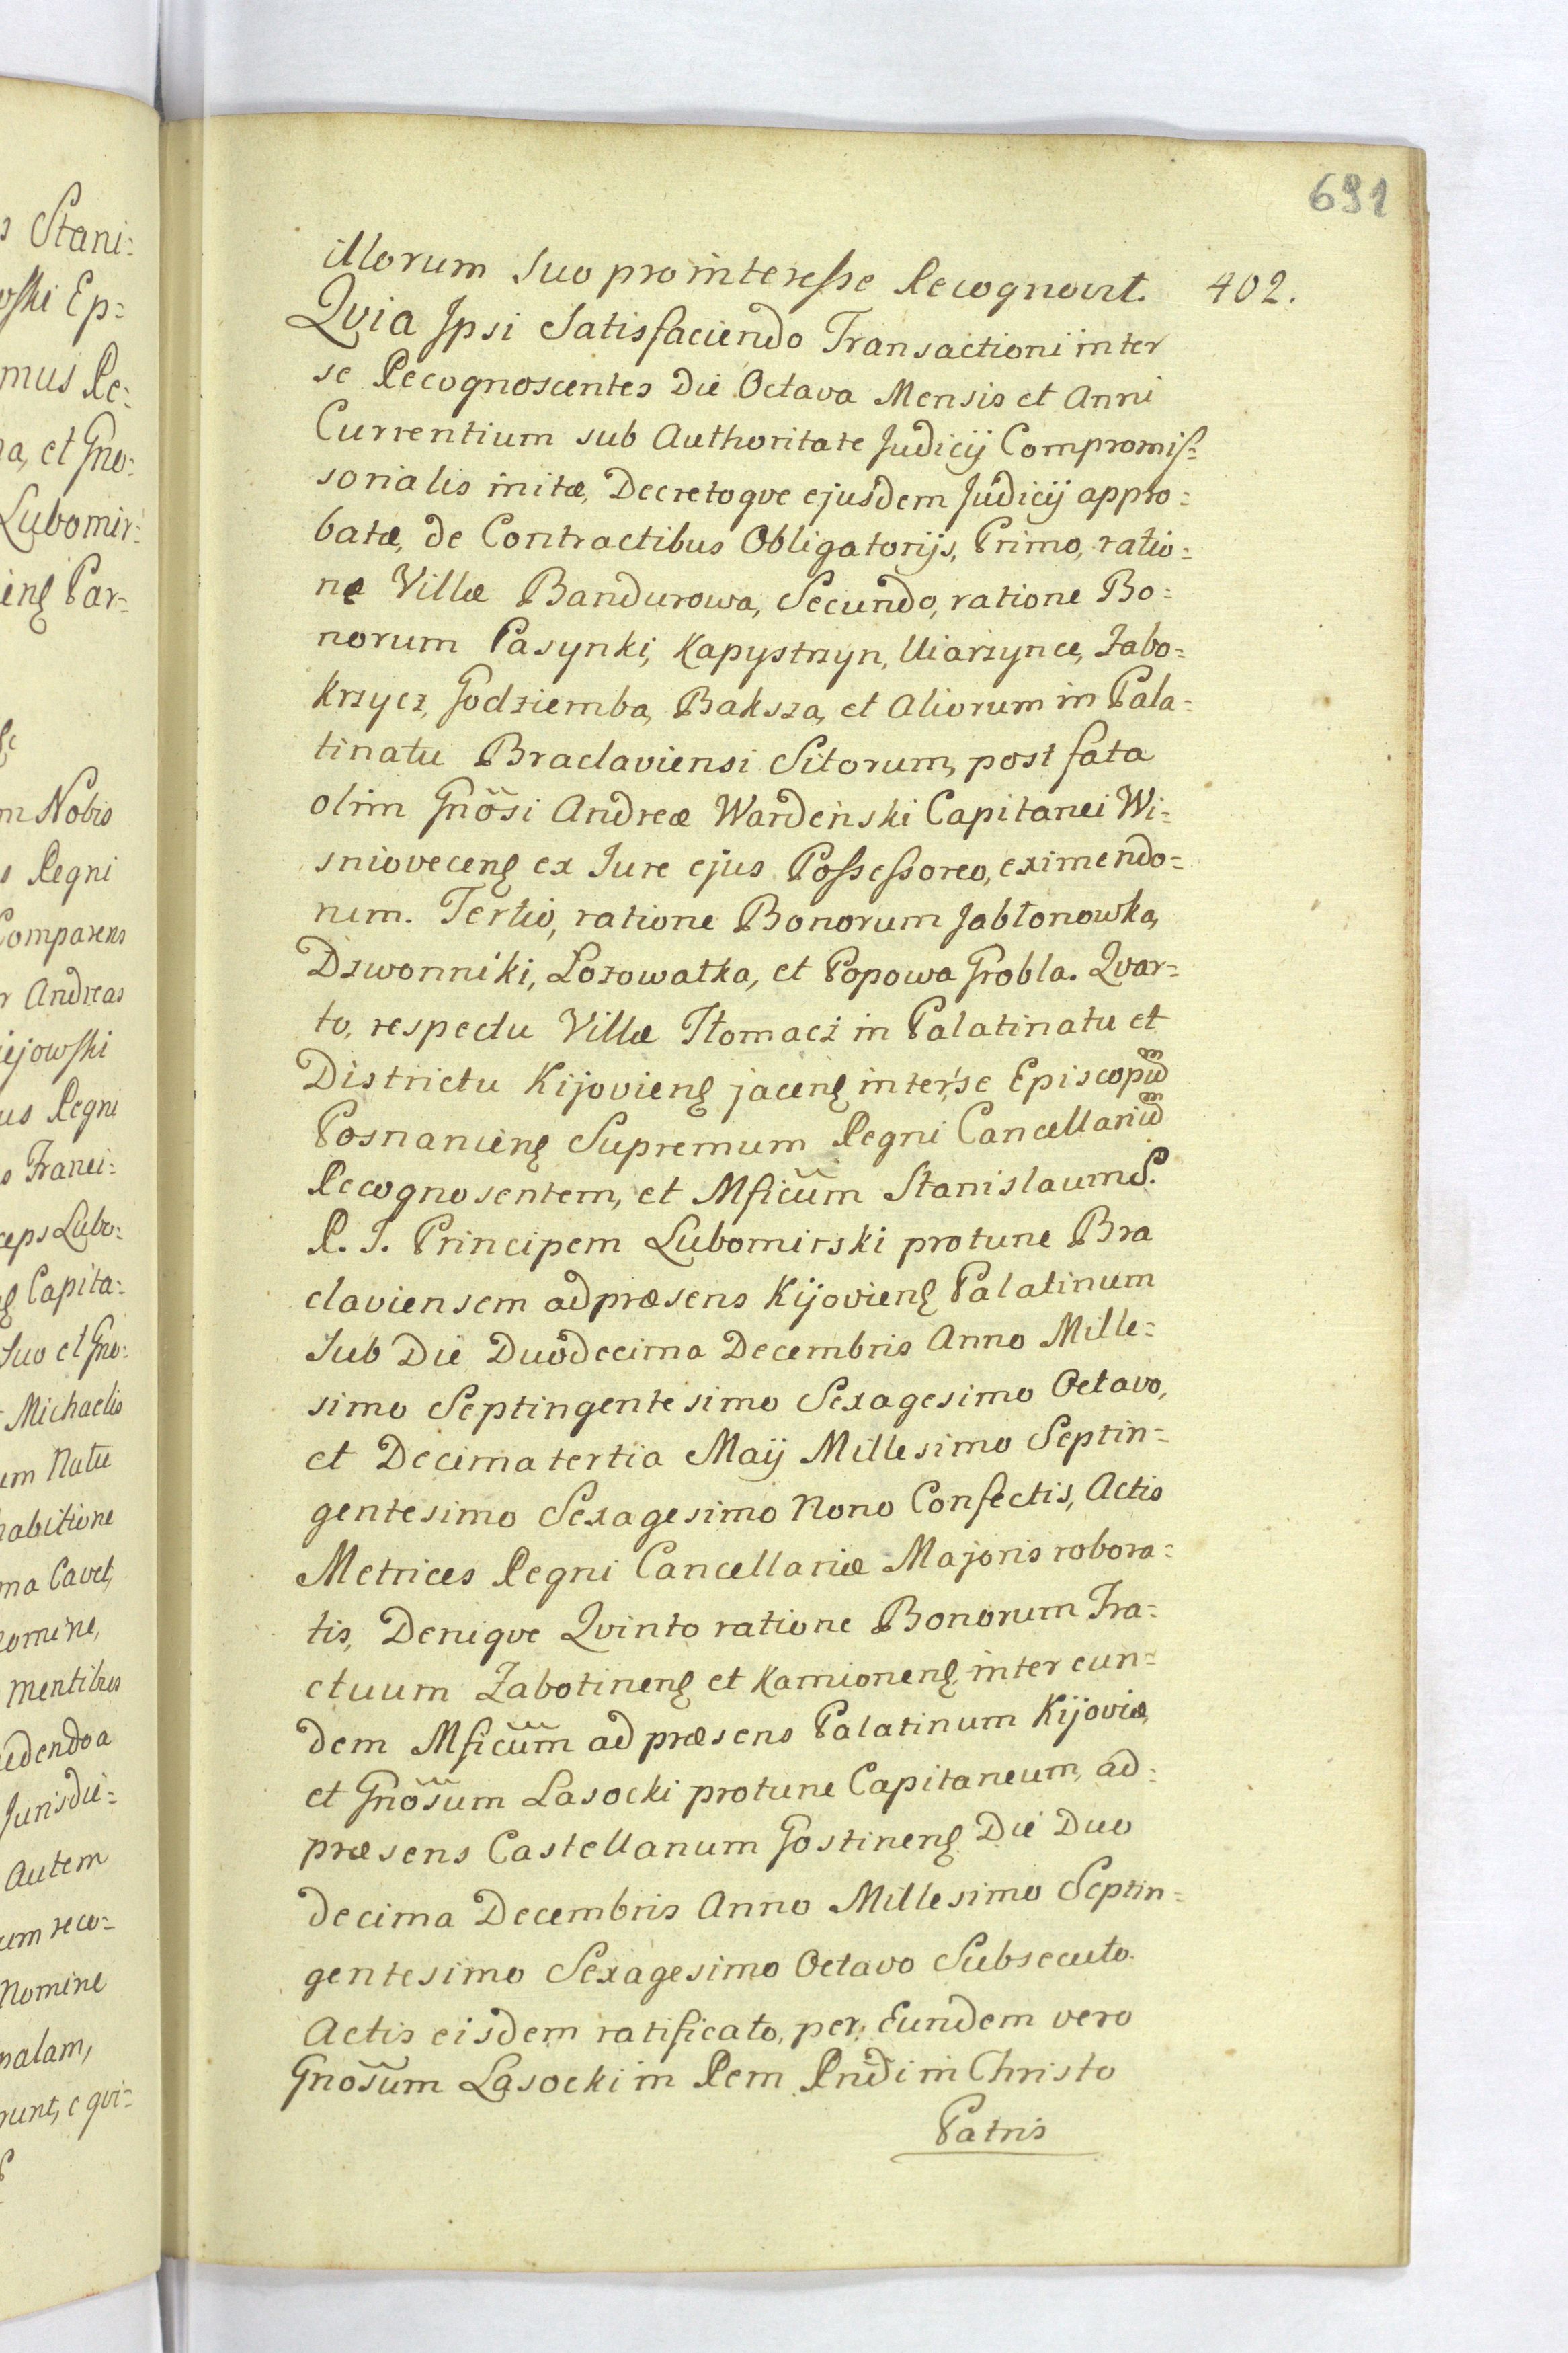 691
402.
illorum suo pro interesse Recognovit.
Qvia Ipsi Satisfaciendo Transactioni inter
se Recognoscentes Die Octava Mensis et Anni
Currentium sub Authoritate Judicij Compromis=
sorialis initæ, Decretoqve ejusdem Judicij appro=
batæ, de Contractibus Obligatorijs, Primo, ratio=
ne Villæ Bandurowa, Secundo, ratione Bo=
norum Pasynki, Kapystrzyn, Uiarzynce, Zabo=
krzycz, Godziemba, Baksza, et Aliorum in Pala=
tinatu Braclaviensi Sitorum, post fata
olim Gnosi Andreæ Wardenski Capitanei Wi=
snioveceng ex Jure ejus Possessoreo, eximendo=
rum. Tertio, ratione Bonorum Jabłonowka,
Dzwonniki, Łozowatka, et Popowa Grobla. Qvar=
to, respectu Villæ Tłomacz in Palatinatu et
Districtu Kijovieng jaceng inter se Episcopum
Posnanieng Supremum Regni Cancellarium
Recognosentem, et Mficum Stanislaum S.
R. I. Principem Lubomirski protunc Bra
claviensem adpræsens Kijovieng Palatinum
Sub Die Duodecima Decembris Anno Mille=
simo Septingentesimo Sexagesimo Octavo,
et Decima tertia Maij Millesimo Septin=
gentesimo Sexagesimo Nono Confectis, Actis
Metrices Regni Cancellariæ Majoris robora=
tis, Deniqve Qvinto ratione Bonorum Tra=
ctuum Zabotineng et Kamioneng inter eun=
dem Mficum ad præsens Palatinum Kijoviæ,
et Gnosum Lasocki protunc Capitaneum, ad=
præsens Castellanum Gostineng Die Duo
decima Decembris Anno Millesimo Septin=
gentesimo Sexagesimo Octavo Subsecuto.
Actis eisdem ratificato, per Eundem vero
Gnosum Lasocki in Rem Rndi in Christo
Patris